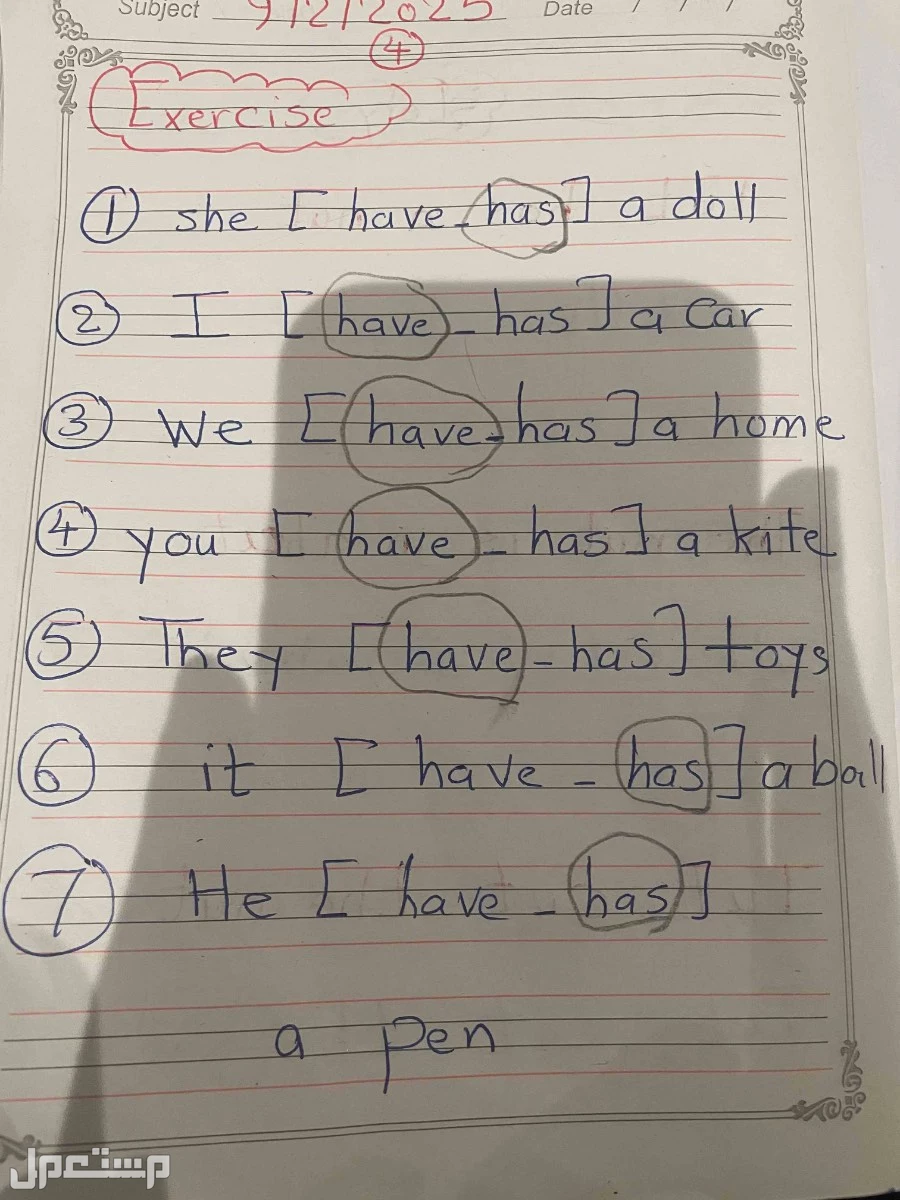 Subject 9/2/2025 Date / / /
4
Exercise
1 she [ have - has ] a doll
2 I [ have - has ] a Car
3 We [ have - has ] a home
4 you [ have - has ] a kite
5 They [ have - has ] toys
6 it [ have - has ] a ball
7 He [ have - has ]
a pen
مستعمل